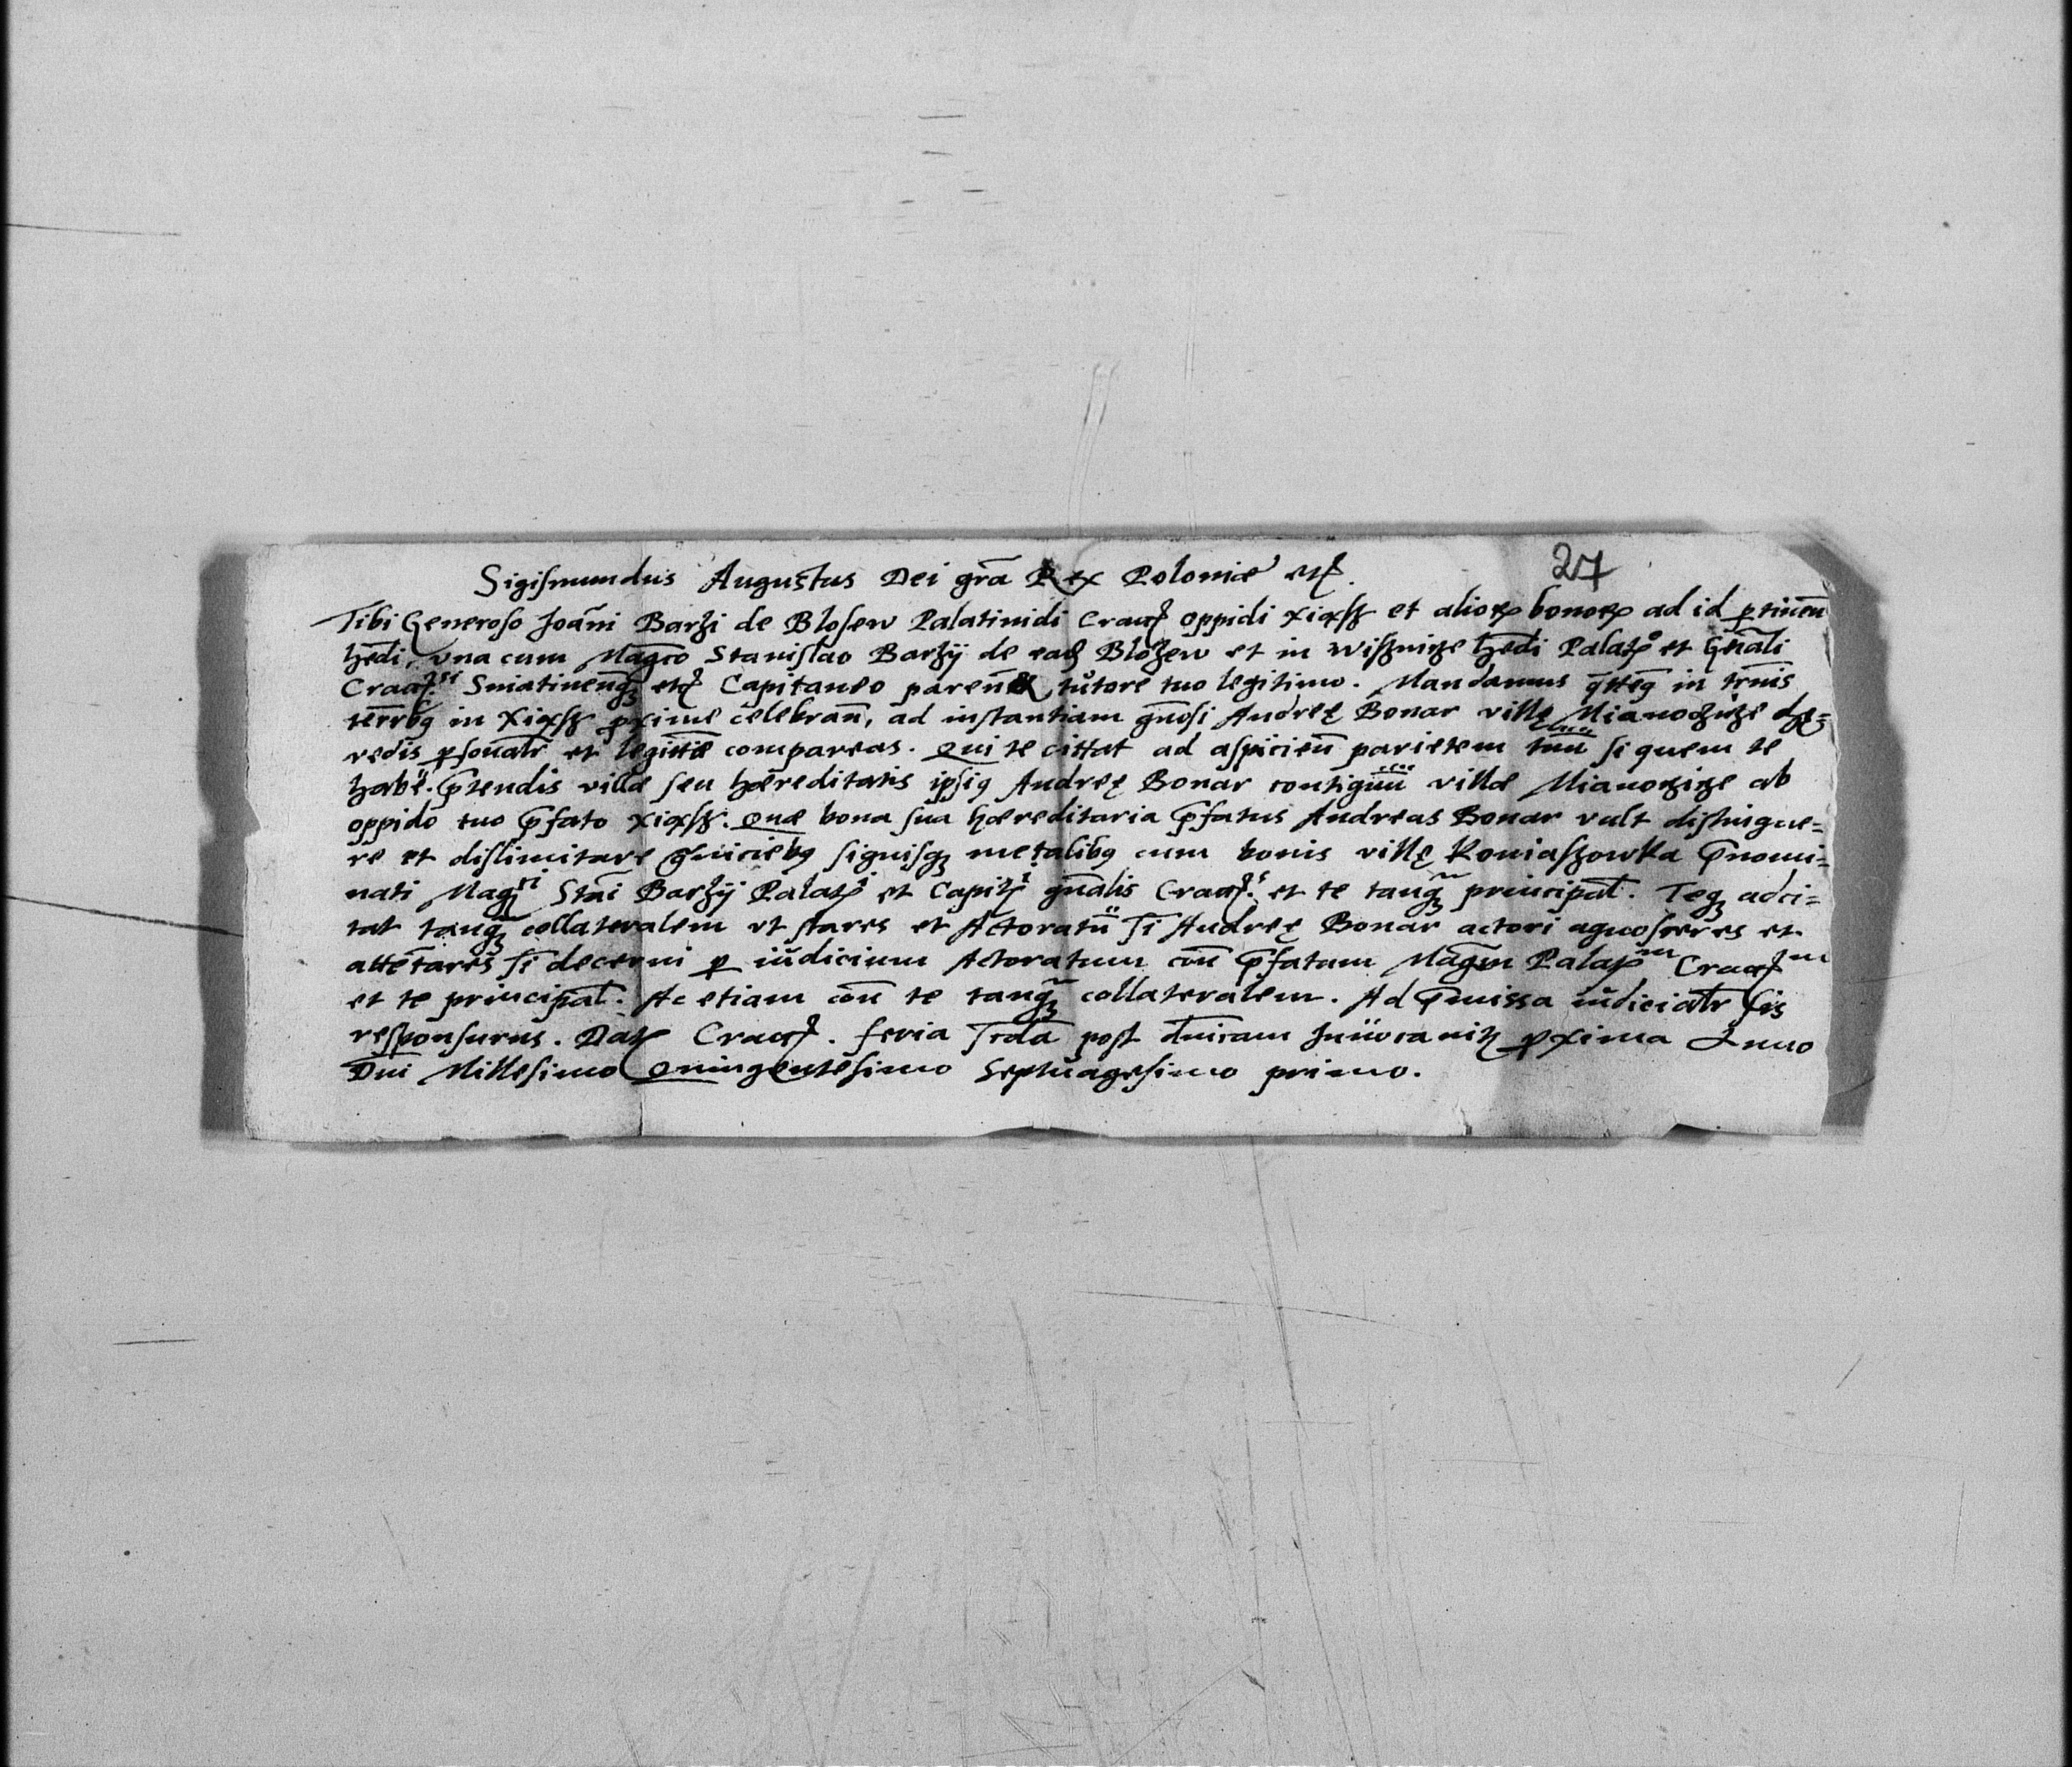 27
Sigismundus Augustus Dei gr̄a Rex Poloniæ etc.
Tibi Generoso Joān̄i Barzi de Blosew Palatinidi Crac̄ oppidi Xiąsz et alioꝝ bonoꝝ ad id ꝑtineñ
hēdi, vna cum Magc̄o Stanislao Barzÿ de eadꝫ Blozew et in Wisznicze hēdi Palatꝰ et Gn̄ali
Crac̄ Sniatineñqꝫ etc Capitaneo pareñ tutore tuo legitimo. Mandamus in tr̄nis
terr̄bꝫ in Xiąsz ꝓxime celebrañ, ad instantiam gn̄osi Andreę Bonar villę Mianoczicze hę=
redis ꝑsonalr̄ et legitt̄e compareas. Qui te cittat ad aspicieñ parietem tuū si quem te
habē. p̄tendis villæ seu hæreditatis ipsiꝰ Andreę Bonar contiguū villæ Mianoczicze ab
oppido tuo p̄fato Xiąsz. Quæ bona sua hæreditaria p̄fatus Andreas Bonar vult distingue=
re et dislimitare gr̄niciebꝫ signisqꝫ metalibꝫ cum bonis villę Koniaszowka p̄nomi=
nati Magci Stāi Barzÿ Palatꝭ et Capitꝭ gn̄alis Crac̄ et te tanqꝫ principal̄. Teqꝫ adci=
tat tanqꝫ collateralem vt stares et Actoratū Ti Andreę Bonar actori agnosceres et
attentares Ti decerni ꝑ iudicium Actoratum coñ p̄fatum Magc̄m Palatm Cracm
et te principal̄. Ac etiam coñ te tanqꝫ collateralem. Ad p̄missa iudicialr̄ sis
responsurus. Datꝭ Crac̄. feria Tcda post dn̄icam Inuocauitꝫ ꝓxima Anno
Dn̄i Millesimo Quingentesimo Septuagesimo primo.